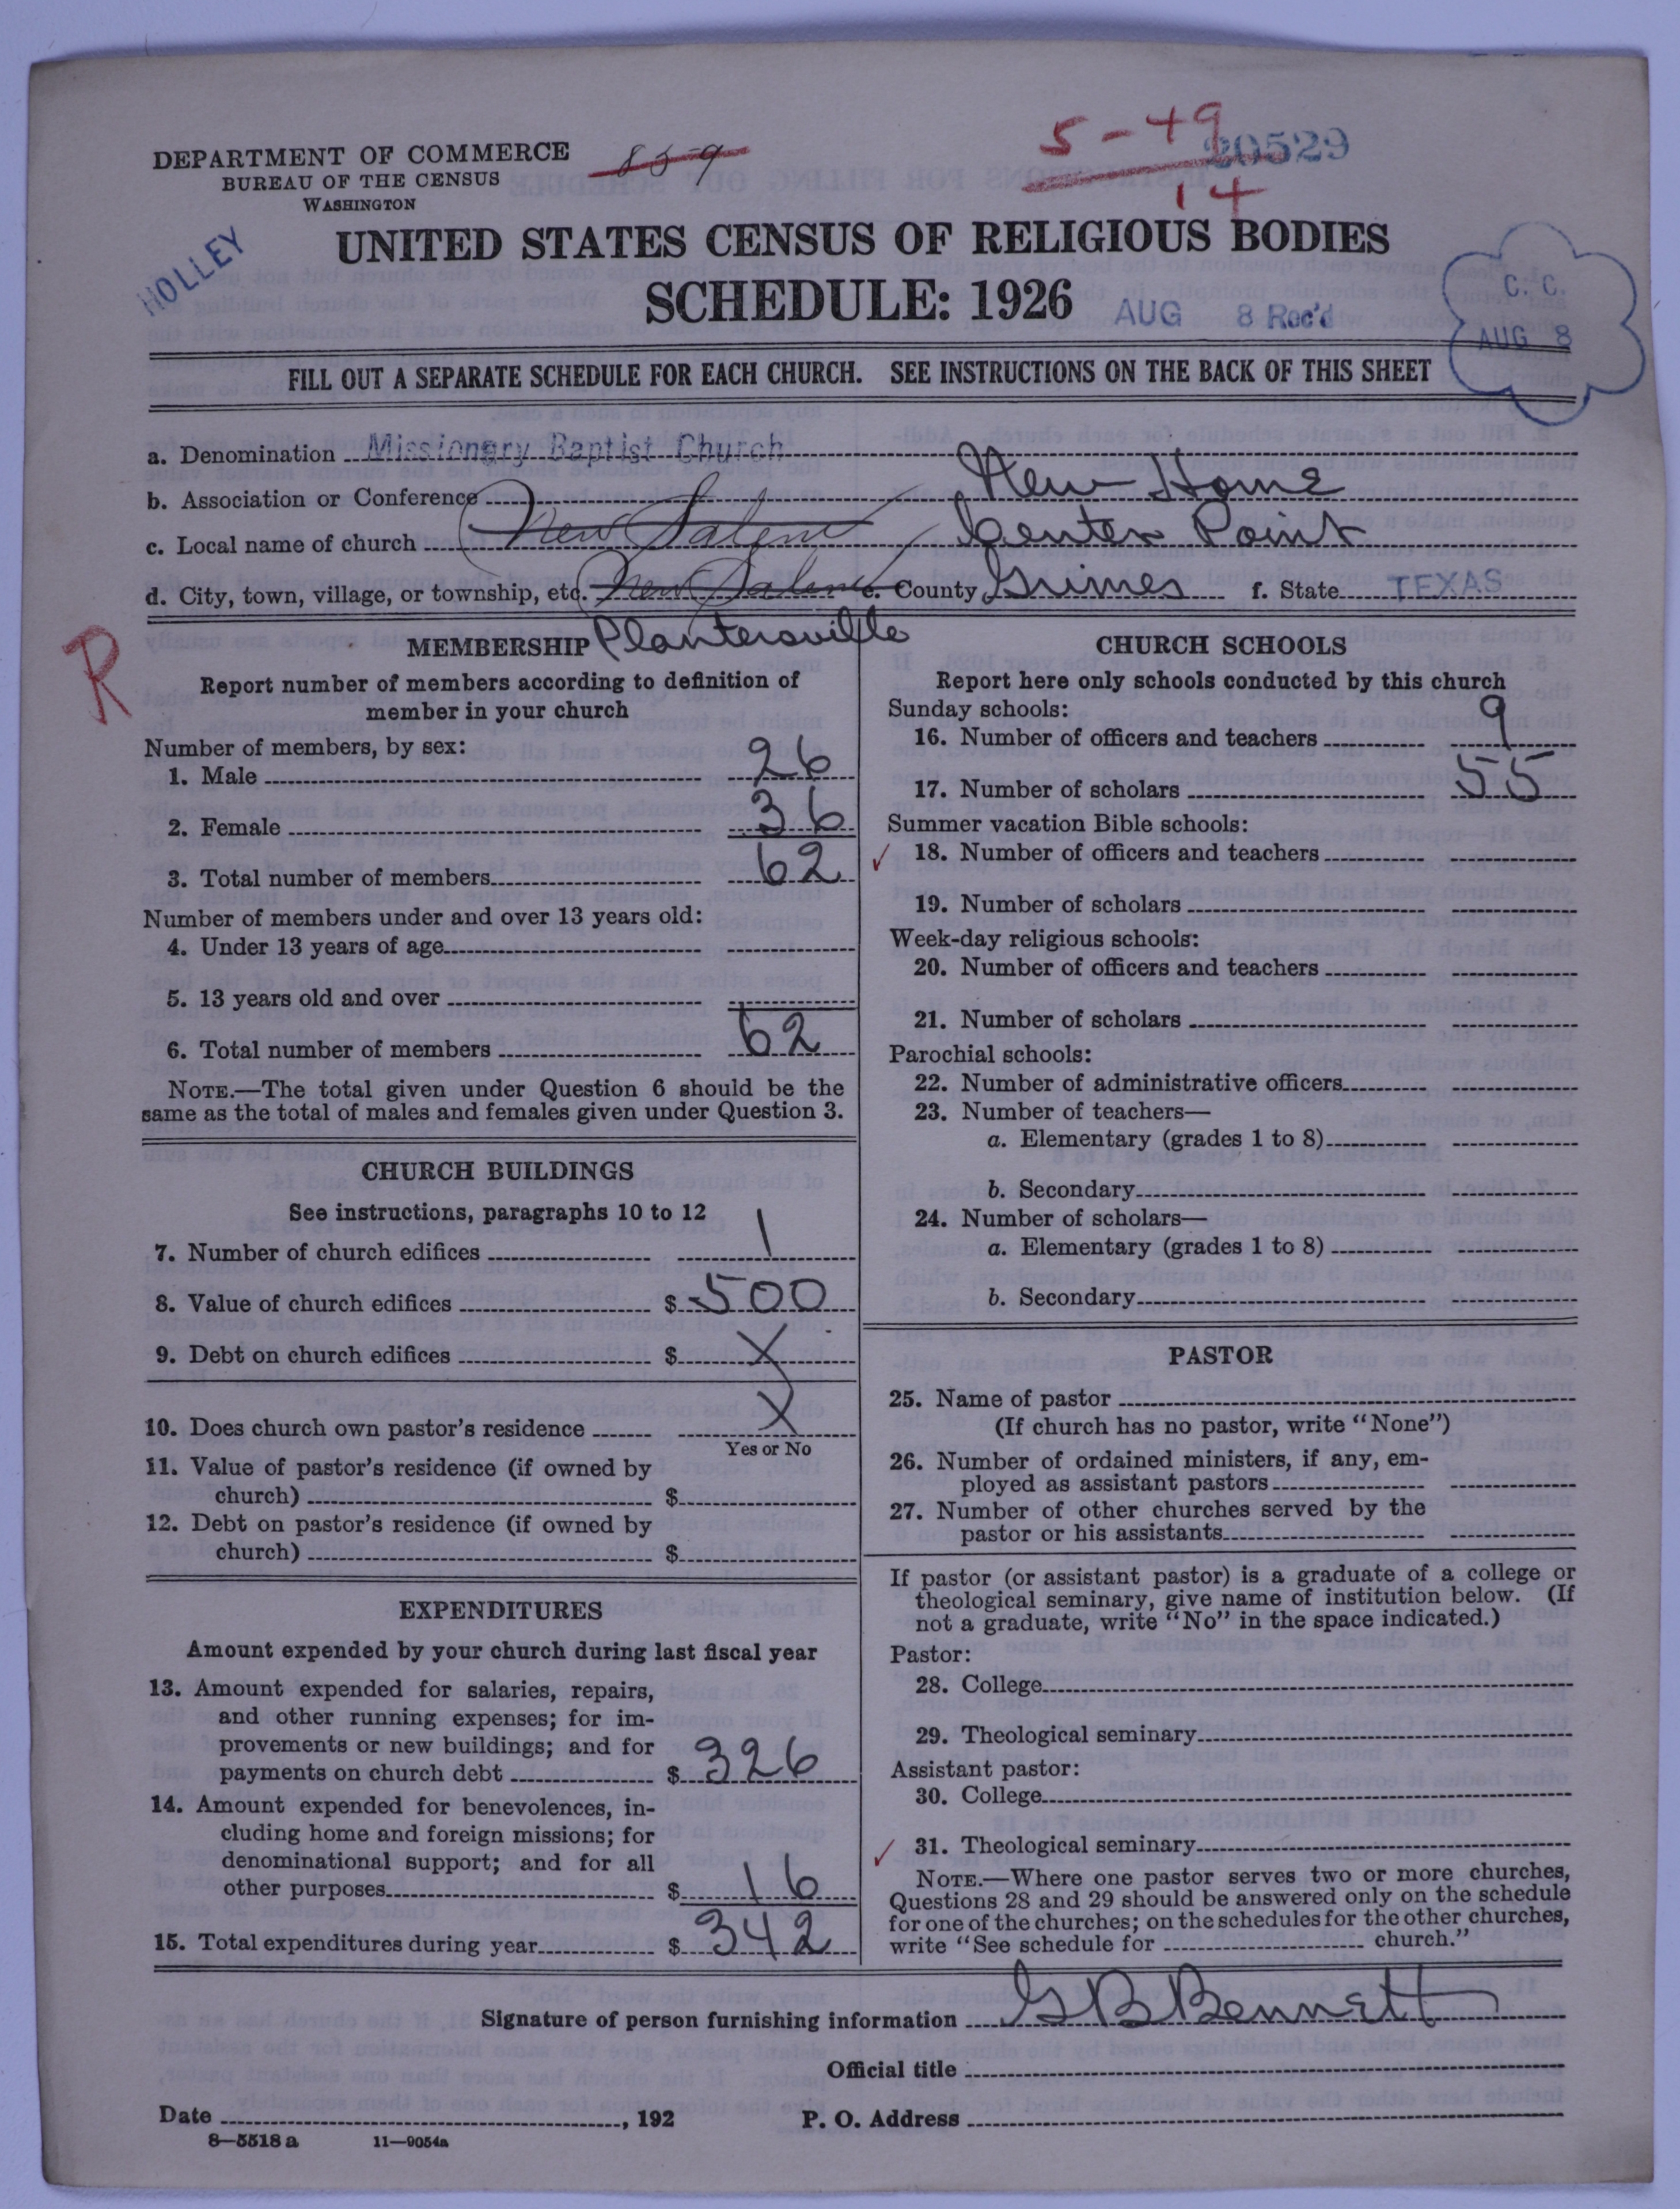 DEPARTMENT OF COMMERCE
BUREAU OF THE CENSUS
WASHINGTON
859
5-49
14
20529
HOLLEY
UNITED STATES CENSUS OF RELIGIOUS BODIES
SCHEDULE: 1926
AUG 8 Rec'd
C. C.
AUG 8
FILL OUT A SEPARATE SCHEDULE FOR EACH CHURCH. SEE INSTRUCTIONS ON THE BACK OF THIS SHEET
a. Denomination Missionary Baptist Church
b. Association or Conference New Home
c. Local name of church New Salem Center Point
d. City, town, village, or township, etc. New Salem e. County Grimes f. State TEXAS
Plantersville
R
MEMBERSHIP
Report number of members according to definition of
member in your church
Number of members, by sex:
1. Male 26
2. Female 36
3. Total number of members 62
Number of members under and over 13 years old:
4. Under 13 years of age
5. 13 years old and over
6. Total number of members 62
NOTE.—The total given under Question 6 should be the
same as the total of males and females given under Question 3.
CHURCH BUILDINGS
See instructions, paragraphs 10 to 12
7. Number of church edifices 1
8. Value of church edifices $ 500
9. Debt on church edifices $ X
10. Does church own pastor's residence X
Yes or No
11. Value of pastor's residence (if owned by
church) $
12. Debt on pastor's residence (if owned by
church) $
EXPENDITURES
Amount expended by your church during last fiscal year
13. Amount expended for salaries, repairs,
and other running expenses; for im-
provements or new buildings; and for
payments on church debt $ 326
14. Amount expended for benevolences, in-
cluding home and foreign missions; for
denominational support; and for all
other purposes $ 16
15. Total expenditures during year $ 342
CHURCH SCHOOLS
Report here only schools conducted by this church
Sunday schools:
16. Number of officers and teachers 9
17. Number of scholars 55
Summer vacation Bible schools:
✓ 18. Number of officers and teachers
19. Number of scholars
Week-day religious schools:
20. Number of officers and teachers
21. Number of scholars
Parochial schools:
22. Number of administrative officers
23. Number of teachers—
a. Elementary (grades 1 to 8)
b. Secondary
24. Number of scholars—
a. Elementary (grades 1 to 8)
b. Secondary
PASTOR
25. Name of pastor
(If church has no pastor, write "None")
26. Number of ordained ministers, if any, em-
ployed as assistant pastors
27. Number of other churches served by the
pastor or his assistants
If pastor (or assistant pastor) is a graduate of a college or
theological seminary, give name of institution below. (If
not a graduate, write "No" in the space indicated.)
Pastor:
28. College
29. Theological seminary
Assistant pastor:
30. College
✓ 31. Theological seminary
NOTE.—Where one pastor serves two or more churches,
Questions 28 and 29 should be answered only on the schedule
for one of the churches; on the schedules for the other churches,
write "See schedule for church."
Signature of person furnishing information G B Bennett
Official title
Date , 192
P. O. Address
8—5518 a 11—9054a